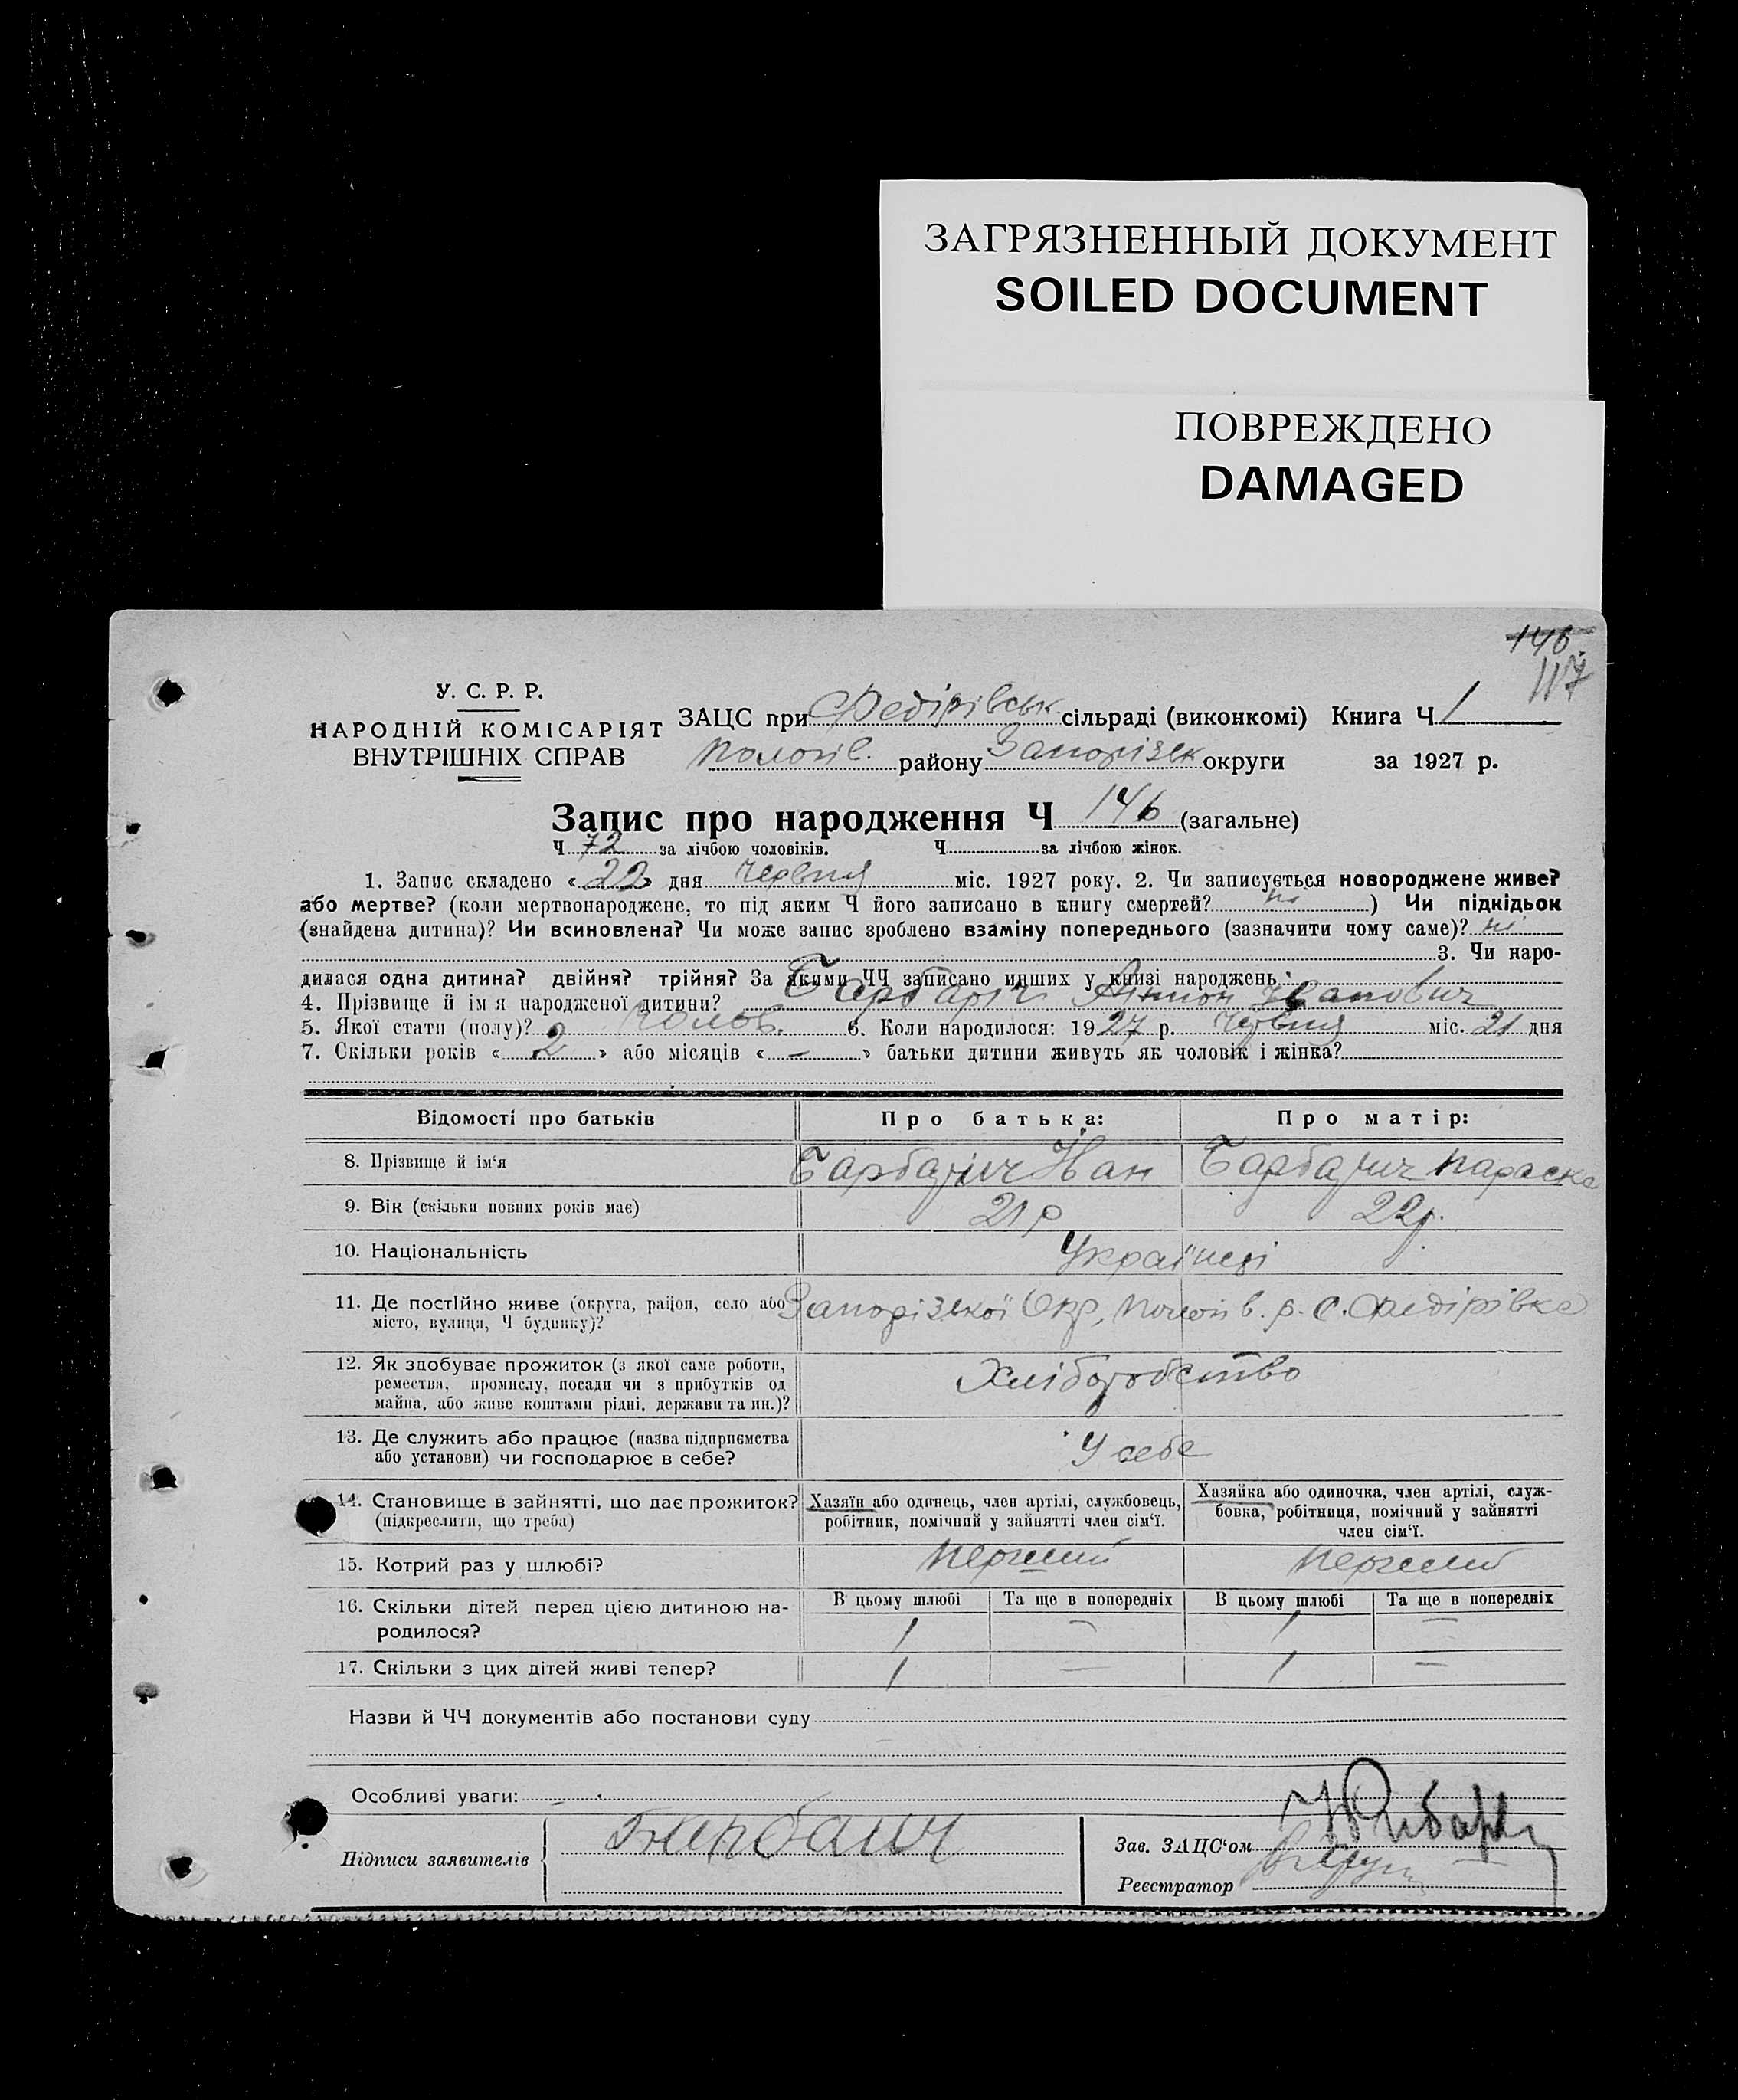 ЗАГРЯЗНЕННЫЙ ДОКУМЕНТ
SOILED DOCUMENT
ПОВРЕЖДЕНО
DAMAGED
146
117
У. С. Р. Р.
НАРОДНІЙ КОМІСАРІЯТ
ВНУТРІШНІХ СПРАВ
ЗАЦС при Федірівськ сільраді (виконкомі) Книга Ч 1
Пологів. району Запорізьк округи за 1927 р.
Запис про народження Ч 146 (загальне)
Ч 72 за лічбою чоловіків. Ч за лічбою жінок.
1. Запис складено « 22 » дня червня міс. 1927 року. 2. Чи записується новороджене живе?
або мертве? (коли мертвонароджене, то під яким Ч його записано в книгу смертей? ні ) Чи підкідьок
(знайдена дитина)? Чи всиновлена? Чи може запис зроблено взаміну попереднього (зазначити чому саме)? ні
3. Чи наро-
дилася одна дитина? двійня? трійня? За якими ЧЧ записано инших у книзі народжень
4. Прізвище й ім я народженої дитини? Барбарич Антон Іванович
5. Якої стати (полу)? чолов. 6. Коли народилося: 1927 р. червня міс. 21 дня
7. Скільки років « 2 » або місяців « – » батьки дитини живуть як чоловік і жінка?
Відомості про батьків Про батька: Про матір:
8. Прізвище й ім‘я Барбарич Іван Барбарич Параска
9. Вік (скільки повних років має) 21 р 22 р.
10. Національність Українці
11. Де постійно живе (округа, район, село або Запорізької Окр, Пологів. р. с. Федірівка
місто, вулиця, Ч будинку)?
12. Як здобуває прожиток (з якої саме роботи, Хліборобство
ремества, промислу, посади чи з прибутків од
майна, або живе коштами рідні, держави та ин.)?
13. Де служить або працює (назва підприємства У себе
або установи) чи господарює в себе?
14. Становище в зайнятті, що дає прожиток? Хазяїн або одинець, член артілі, службовець, Хазяйка або одиночка, член артілі, служ-
(підкреслити, що треба) робітник, помічний у зайнятті член сім‘ї. бовка, робітниця, помічний у зайнятті
член сім‘ї.
15. Котрий раз у шлюбі? Перший Перший
16. Скільки дітей перед цією дитиною на- В цьому шлюбі Та ще в попередніх В цьому шлюбі Та ще в попередніх
родилося? 1 – 1 –
17. Скільки з цих дітей живі тепер? 1 – 1 –
Назви й ЧЧ документів або постанови суду
Особливі уваги:
Підписи заявителів Барбарич
Зав. ЗАЦС‘ом
Реєстратор